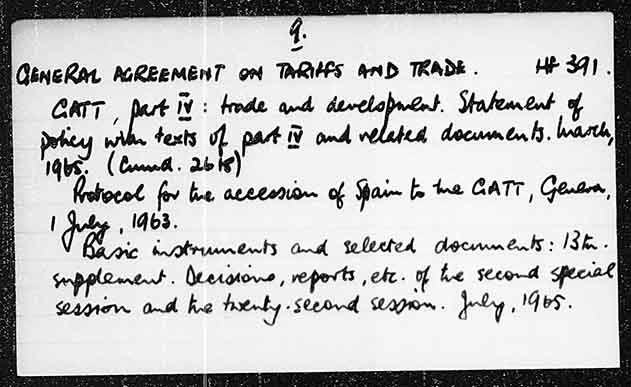 9.
GENERAL AGREEMENT ON TARIFFS AND TRADE. HF 391.
GATT, part IV: trade and development. Statement of
policy with texts of part IV and related documents. March,
1965. (Cmnd. 2618)
Protocol for the accession of Spain to the GATT, Geneva,
1 July, 1963.
Basic instruments and selected documents: 13th.
supplement. Decisions, reports, etc. of the second special
session and the twenty-second session. July, 1965.